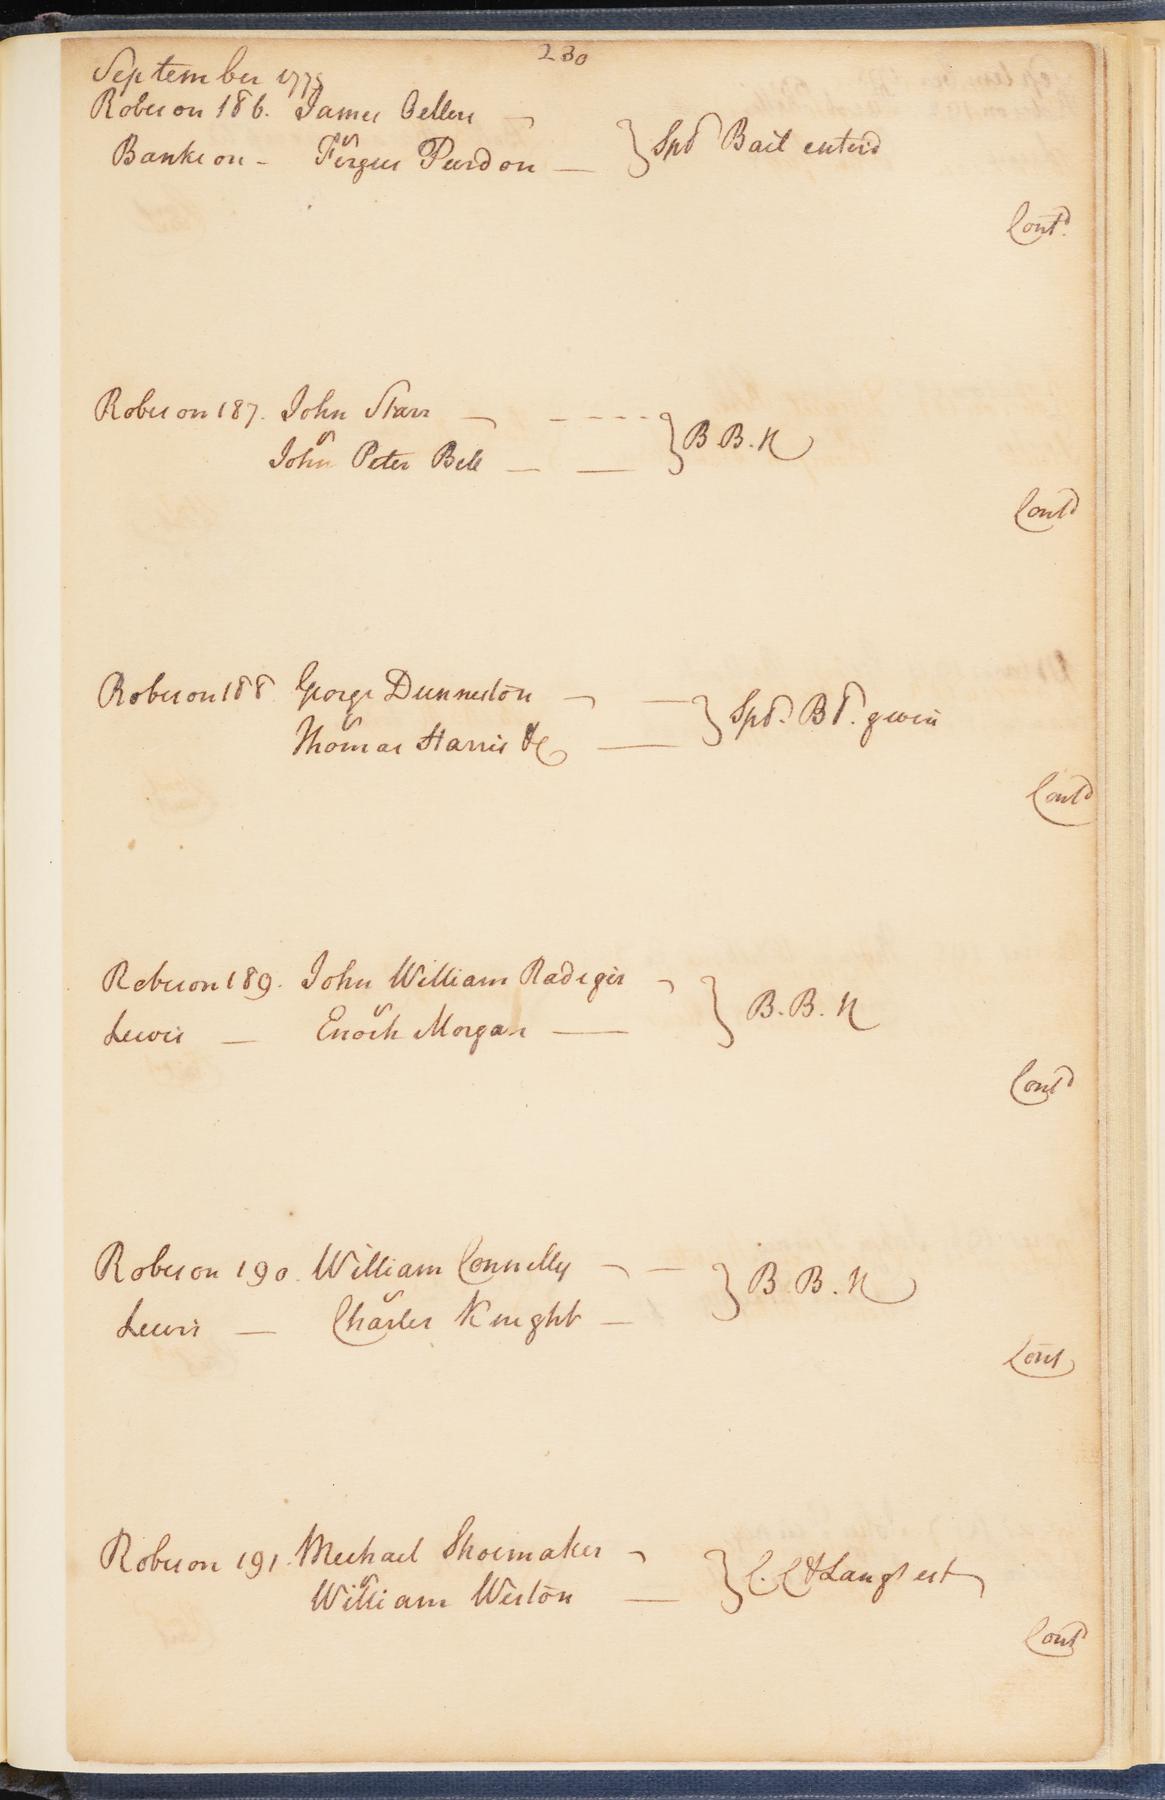 230
September 1775
Robeson 186. James Oellers
vs
Bankson - Fergus Purdon — } Spl Bail enterd
Contd.
Robeson 187. John Starr
vs
John Peter Bell — — } B. B. N
Contd
Robeson 188 George Dunneston
vs
Thomas Harris &c — } Spl. Bl. given
Contd
Robeson 189. John William Radiger
vs
Lewis — Enoch Morgan — } B. B. N
Contd
Robeson 190. William Connelly
vs
Lewis — Charles Knight — } B. B. N
Cont
Robeson 191. Michael Shoemaker
vs
William Weston — } C. C & Lang est
Contd